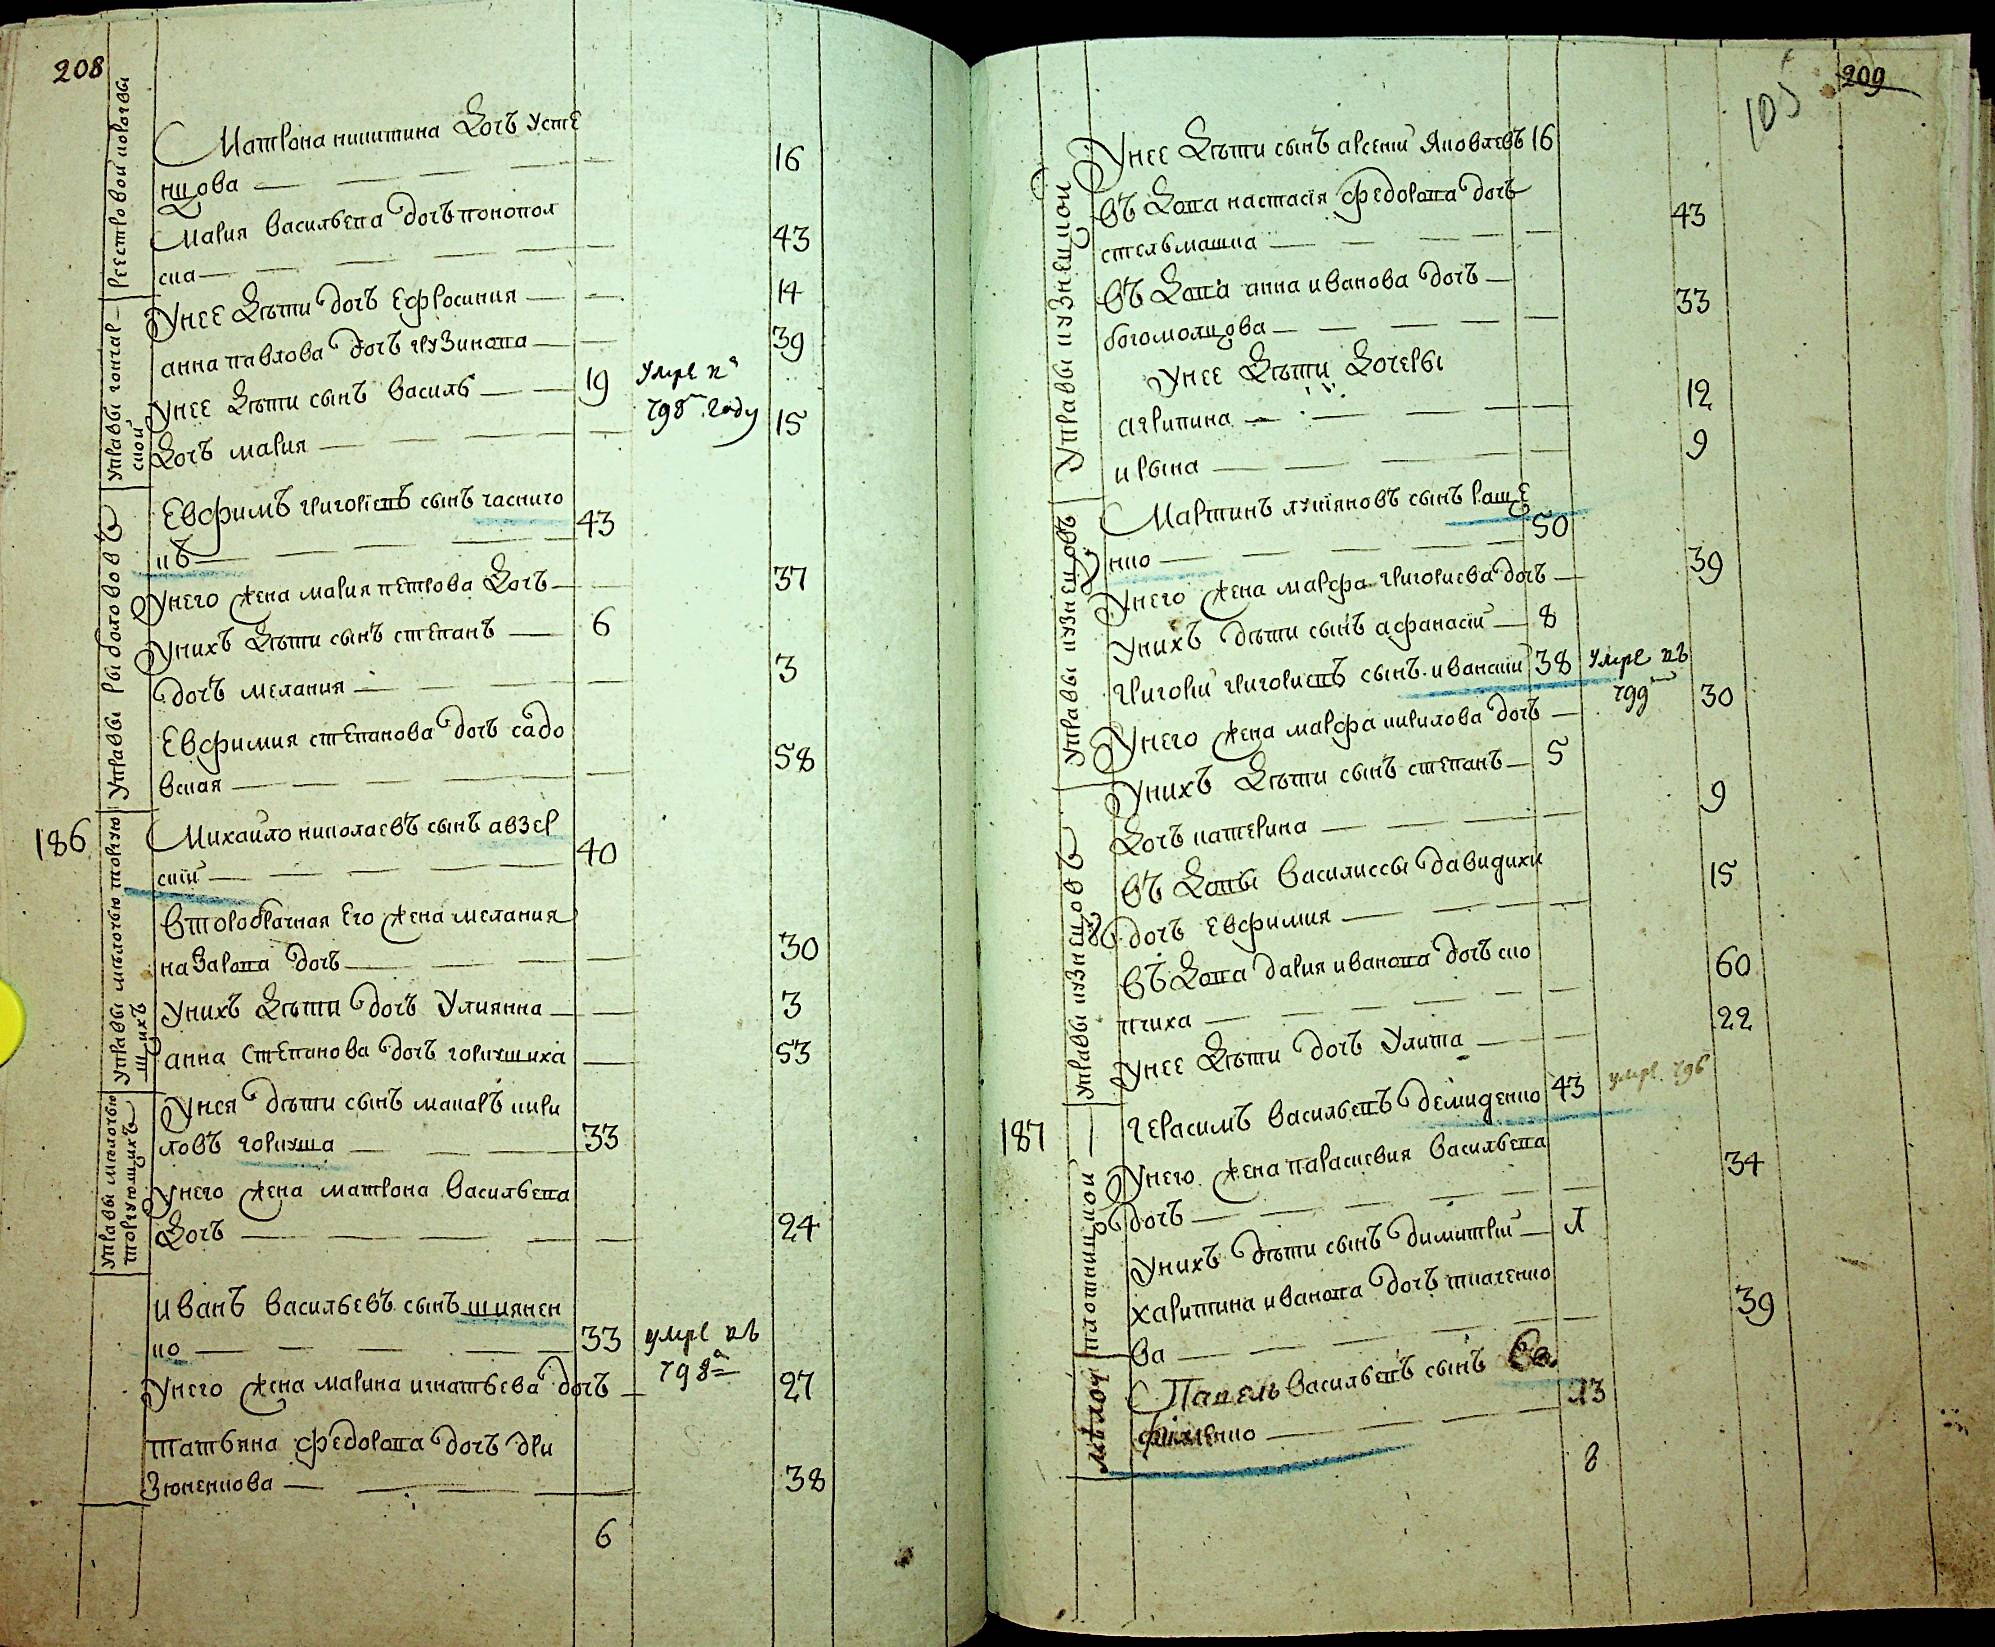 208
Реестровой коловы
Матрона никитина дочъ усте
нцова — 16
Мария васильева дочъ коновал
ска — 43
Управы гончар
ской
Унее дѣти дочъ Ефросиния — 14
анна павлова дочъ грузинова — 39
Унее дѣти сынъ василь — 19 умре въ
798м году
дочъ мария — 15
Управы рыболововъ
Евфимъ григориевъ сынъ часнико
въ — 43
Унего жена мария петрова дочъ — 37
Унихъ дѣти сынъ степанъ — 6
дочъ мелания — 3
Евфимия степанова дочъ садо
вская — 58
186
Управы мѣлочью торгую
щихъ
Михайло николаевъ сынъ авзер
ский — 40
второбрачная его жена мелания
назарова дочъ — 30
Унихъ дѣти дочъ Улиянна — 3
анна степанова дочъ горкушиха — 53
Управы мѣлочью
торгующихъ
Унея дѣти сынъ макаръ кири
ловъ горкуша — 33
Унего жена матрона васильева
дочъ — 24
иванъ васильевъ сынъ шиянен
ко — 33 умре въ
798м
Унего жена марина игнатьева дочъ — 27
татьяна федорова дочъ дри
зюченкова — 38
6
105
209
Управы кузнецкой
Унее дѣти сынъ арсений Яковлевъ 16
въ дова настасія федорова дочъ
стельмашка — 43
въ дова анна иванова дочъ —
богомолцова — 33
Унее дѣти дочеры
агрипина — 12
ирына — 9
Управы кузнецовъ
Мартинъ лукіяновъ сынъ раще
нко — 50
Унего жена марфа григориева дочъ — 39
Унихъ дѣти сынъ афанасий — 8
григорий григориевъ сынъ иванский 38 умре въ
799м
Унего жена марфа кирилова дочъ — 30
Унихъ дѣти сынъ степанъ — 5
дочъ катерина — 9
Управы кузнецовъ
въ довы василиссы давидихи
дочъ евфимия — 15
въ дова дария иванова дочъ ско
пчиха — 60
Унее дѣти дочъ Улита — 22
187
плотницкой
герасимъ васильевъ демиденко 43 умре 796
Унего жена параскевия васильева
дочъ — 34
Унихъ дѣти сынъ димитрий — 1
харитина иванова дочъ ткаченко
ва — 39
мѣлоч
Павель васильевъ сынъ Ев
фименко — 13
8